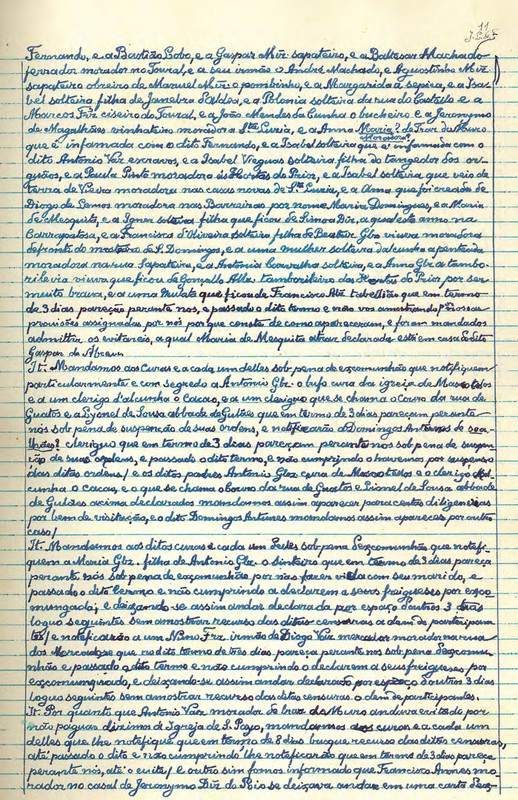 11
Fernando, e a Bastião Lobo, e a Gaspar Miz. sapateiro, e a Baltasar Machado
ferrador morador no Toural, e a seu irmão o André Machado, e Agostinho Miz
sapateiro obreiro de Manuel Miz. o pombinho, e a Margarida a sepica, e a Isa-
bel solteira filha de Janebra Caldea, e a Polonia solteira da rua do Castello e a
Marcos Frz ciseiro do Toural, e a João Mendes da Cunha o bucheiro e a Jeronymo
de Magalhães vinhateiro morador a Stª Luzia, e a Anna Maria? de Traz do Muro
Moradora?
que é infamada com o dito Fernando, e a Isabel solteira que é infamada com o
dito Antonio Vaz escravos, e a Isabel Viegas solteira filha do tangedor dos or-
guãos, e a Paula Pinto moradora ás Hortas do Prior, e a Isabel solteira que veio de
terra de Vieira moradora nas casas novas de Stª Luzia, e a Anna que foi creada de
Diogo de Lemos moradora nas Barreiras por nome Maria Domingues, e a Maria
de Mesquita, e a Ignez solteira filha que ficou de Simoa Diz, a qual está amo na
Garrapatosa, e a Francisca d'Oliveira solteira filha de Beatriz Glz viuva moradora
defronte do mosteiro de S. Domingos, e a uma mulher solteira da cunha a penteeira
moradora na rua Sapateira, e a Antonia Carvalha solteira, e a Anna Glz a tambo-
rileira viuva que ficou de Gonçallo Alz. tamborileiro das Hortas do Prior por ser
muito brava, e a uma Mulata que ficou de Francisco Alz tabellião que em termo
de 3 dias pareçam perante nós, e passado o dito termo e não vos amostrando
provisões assignadas por nós por que conste de como appareceram, e foram mandados
admittir os evitareis, a qual Maria de Mesquita atraz declarada está em casa do dito
Gaspar de Abreu
It. Mandamos aos Curas e a cada um delles sob pena de excomunhão que notifiquem
particularmente e con segredo a Antonio Glz. o bufo cura da igreja de Mascotelos
e a um clerigo d'alcunha o Cacaо, e a um clerigo que se chama o Corvo da rua de
Guatos e a Lyonel de Sousa abbade de Gulães que em termo de 3 dias pareçam perante
nós sob pena de suspenção de suas ordens, e notificarão a Domingos Antunes de
clerigo que em termo de 3 dias pareçam perante nós sob pena de suspen-
ção de suas ordens, e passado o dito termo, e não cumprindo o havemos por suspenso
das ditas ordens / e os ditos padres Antonio Glz cura de Mascotellos e o clerigo d'al-
cunha o Cacao, e o que se chama o Corvo da rua de Guatos e Lionel de Sousa abbade
de Gulães acima declarados mandamos assim aparecer para certas diligencias
por bem da visitação, e o dito Domingos Antunes mandamos assim aparecer por outro
caso /
It. Mandamos aos ditos curas e cada um delles sob pena d'excomunhão que notifi-
quem a Maria Glz. filha de Antonio Glz. o sinteiro que em termo de 3 dias pareça
perante nós sob pena de excomunhão por não fazer vida com seu marido, e
passado o dito termo e não cumprindo a declarem a seus freigueses por exco-
mungada; e deixando-se assim andar declarada por espaço d'outros 3 dias
logo seguintes sem amostrar recurso das ditas censuras a dem de participan-
tes / e notificarão a um Nuno Frz. irmão de Diogo Vaz mercador morador na rua
dos Mercadores que no dito termo de tres dias pareça perante nós sob pena d'excomu-
nhão e passado o dito termo e não cumprindo o declarem a seus freigueses por
excomungado, e deixando-se assim andar declarado por espaço d'outros 3 dias
logo seguintes sem amostrar recurso das ditas censuras o dem de participantes.
It. Por quanto que Antonio Vaz morador de traz do Muro andava evitado por
não paguar dizimos á Igreja de S. Payo, mandamos aos curas e a cada um
delles que lhe notifique que em termo de 8 dias busque recurso das ditas censuras,
até passado o dito e não cumprindo lhe notificarão que em termo de 3 dias pareça
perante nós, até o evite / e outro sim fomos informado que Francisco Annes mo-
rador no casal de Jeronymo Diz de Rio se deixava andar em uma carta d'ex-